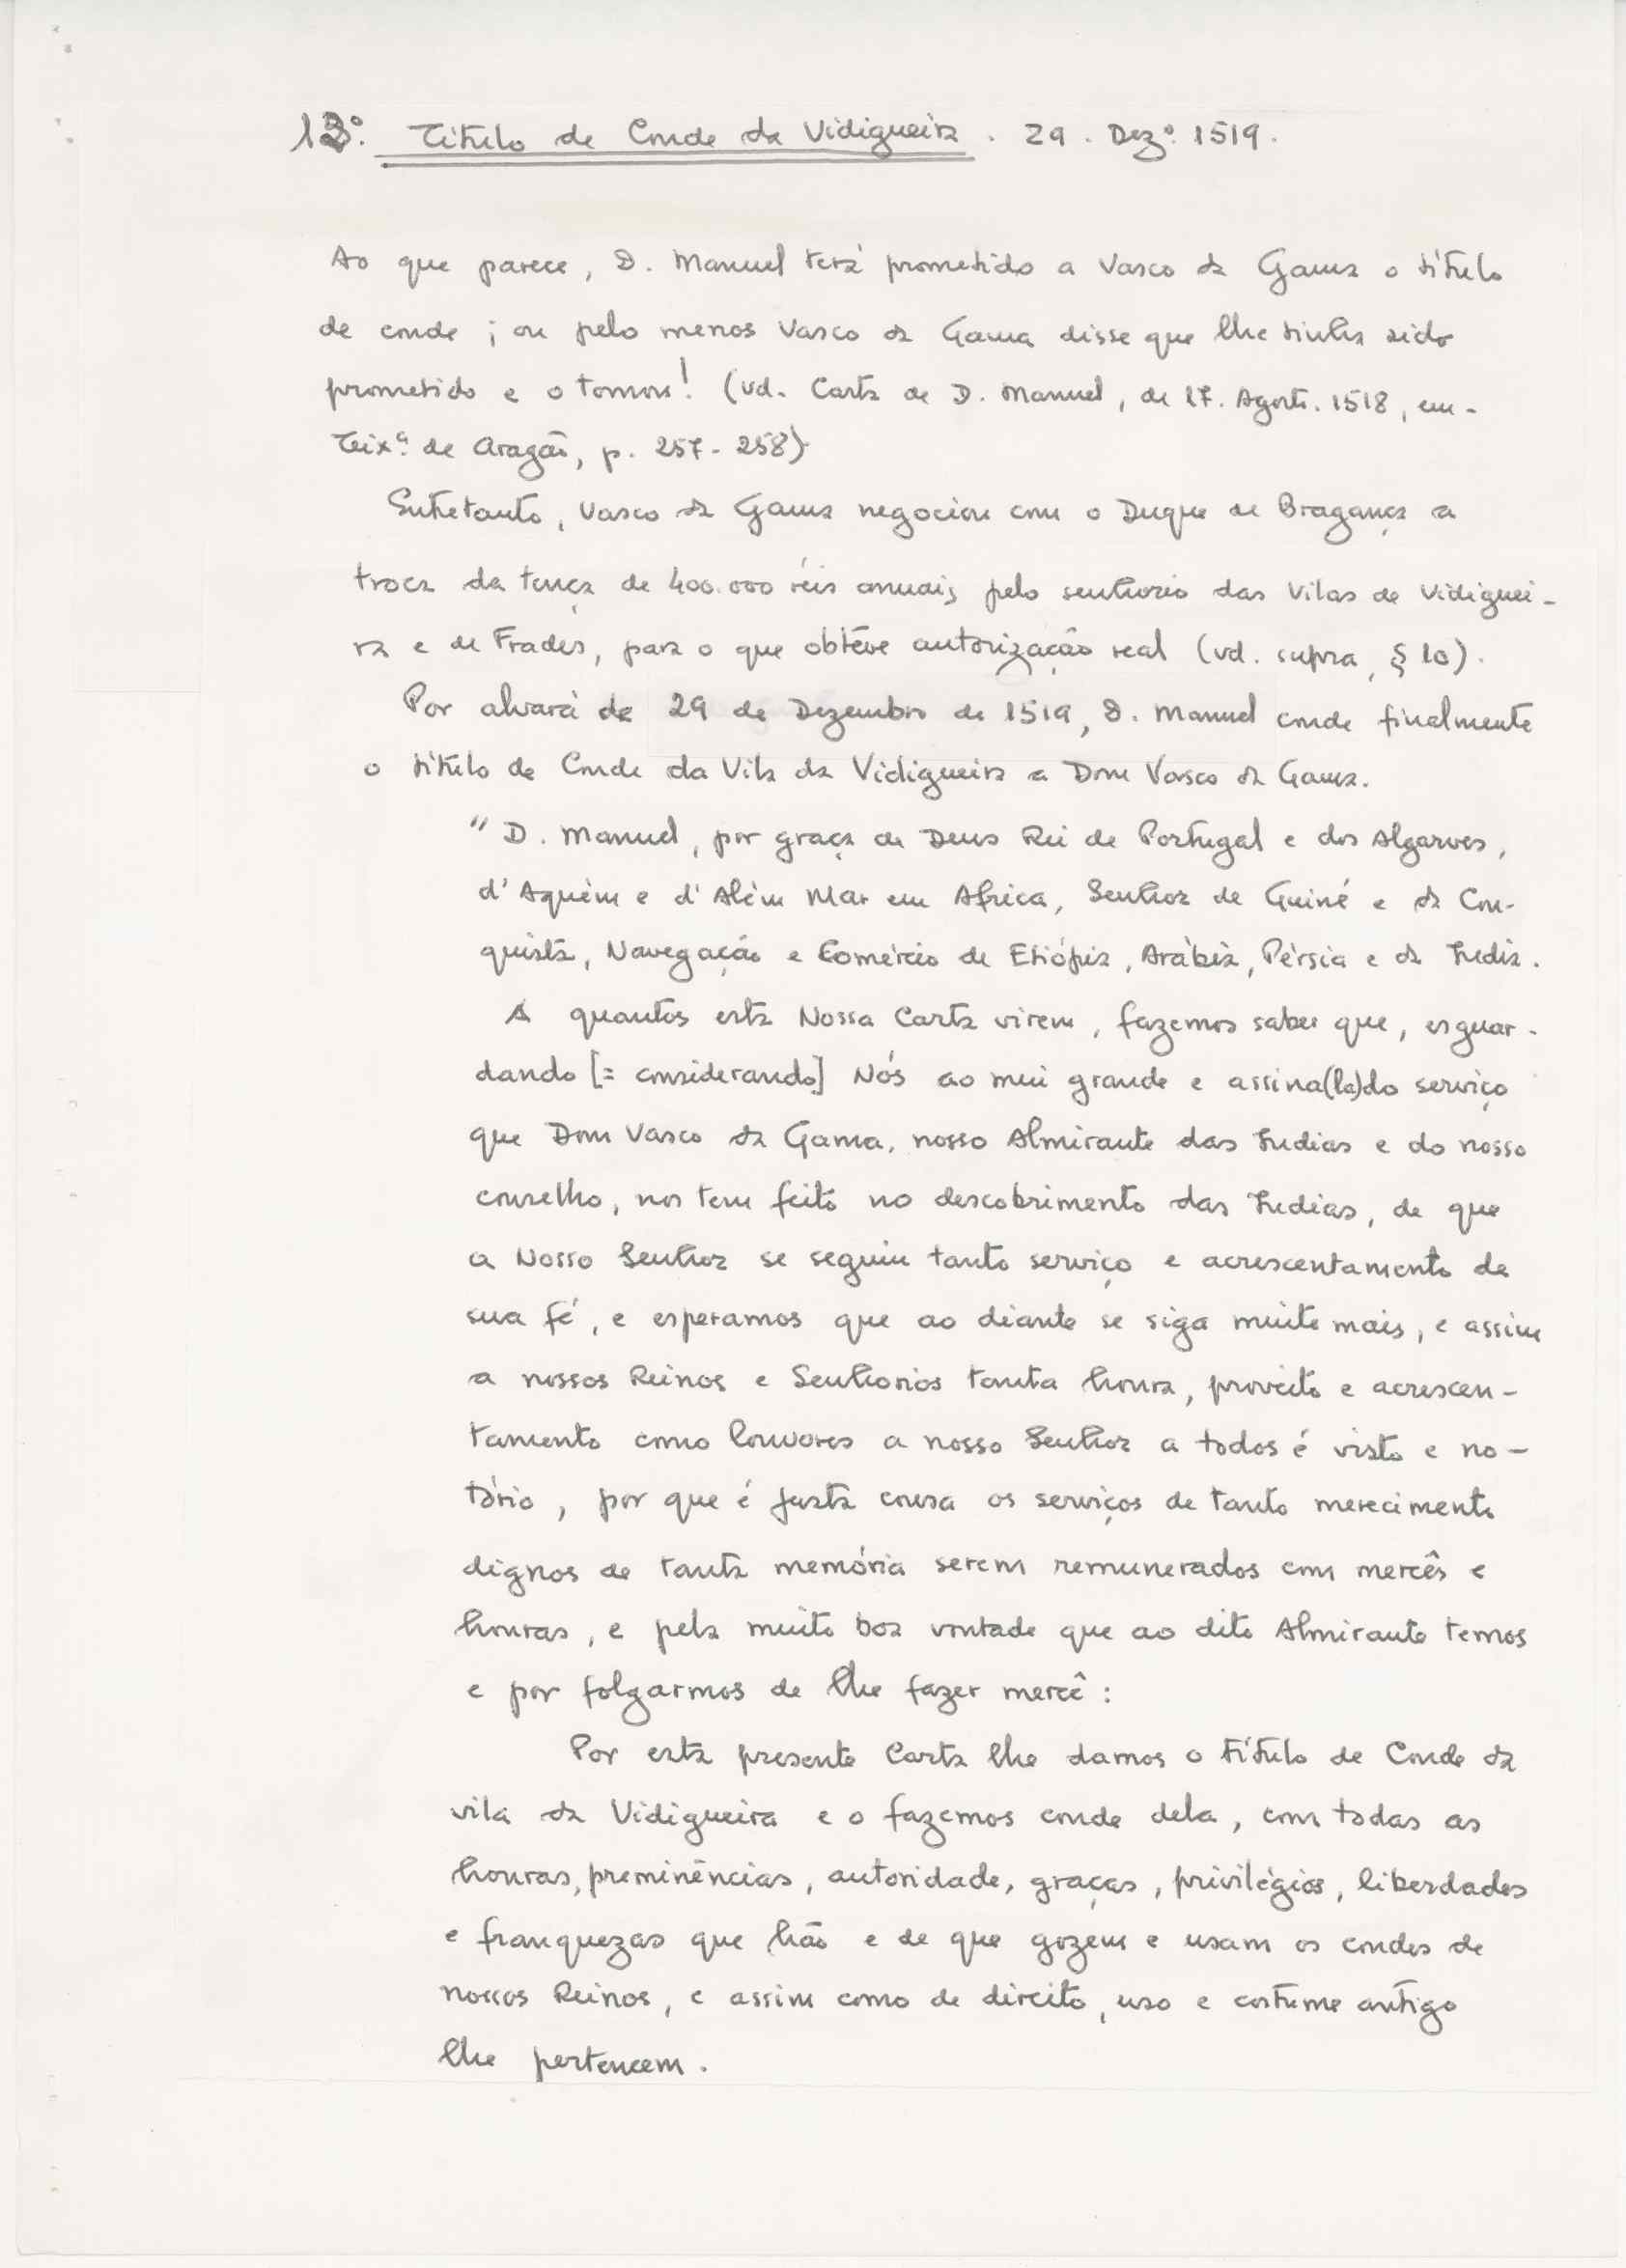 13º. Título de Conde da Vidigueira. 29. Dezº. 1519.
Ao que parece, D. Manuel terá prometido a Vasco da Gama o título
de conde; ou pelo menos Vasco da Gama disse que lhe tinha sido
prometido e o tomou! (vd. Carta de D. Manuel, de 17. Agosto. 1518, em-
Teixª. de Aragão, p. 257-258)
Entretanto, Vasco da Gama negociou com o Duque de Bragança a
troca da tença de 400.000 réis anuais pelo senhorio das Vilas de Vidiguei-
ra e de Frades, para o que obteve autorização real (vd. supra, § 10).
Por alvará de 29 de Dezembro de 1519, D. Manuel conde finalmente
o título de Conde da Vila da Vidigueira a Dom Vasco da Gama.
" D. Manuel, por graça de Deus Rei de Portugal e dos Algarves,
d'Aquém e d'Além Mar em Africa, Senhor de Guiné e da Con-
quista, Navegação e Comércio de Etiópia, Arábia, Pérsia e da India.
A quantos esta Nossa Carta virem, fazemos saber que, esguar-
dando [= considerando] Nós ao mui grande e assina(la)do serviço
que Dom Vasco da Gama, nosso Almirante das Indias e do nosso
conselho, nos tem feito no descobrimento das Indias, de que
a Nosso Senhor se seguiu tanto serviço e acrescentamento de
sua fé, e esperamos que ao diante se siga muito mais, e assim
a nossos Reinos e Senhorios tanta honra, proveito e acrescen-
tamento como louvores a nosso Senhor a todos é visto e no-
tório, por que é justa cousa os serviços de tanto merecimento
dignos de tanta memória serem remunerados com mercês e
honras, e pela muito boa vontade que ao dito Almirante temos
e por folgarmos de lhe fazer mercê:
Por esta presente Carta lhe damos o título de Conde da
vila da Vidigueira e o fazemos conde dela, com todas as
honras, preminências, autoridade, graças, privilégios, liberdades
e franquezas que hão e de que gozem e usam os condes de
nossos Reinos, e assim como de direito, uso e costume antigo
lhe pertencem.